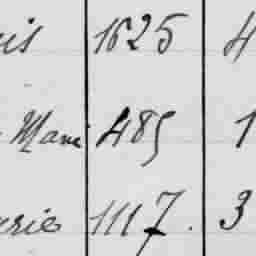 is 1625 4
Mani 485 1
ries 1117. 3